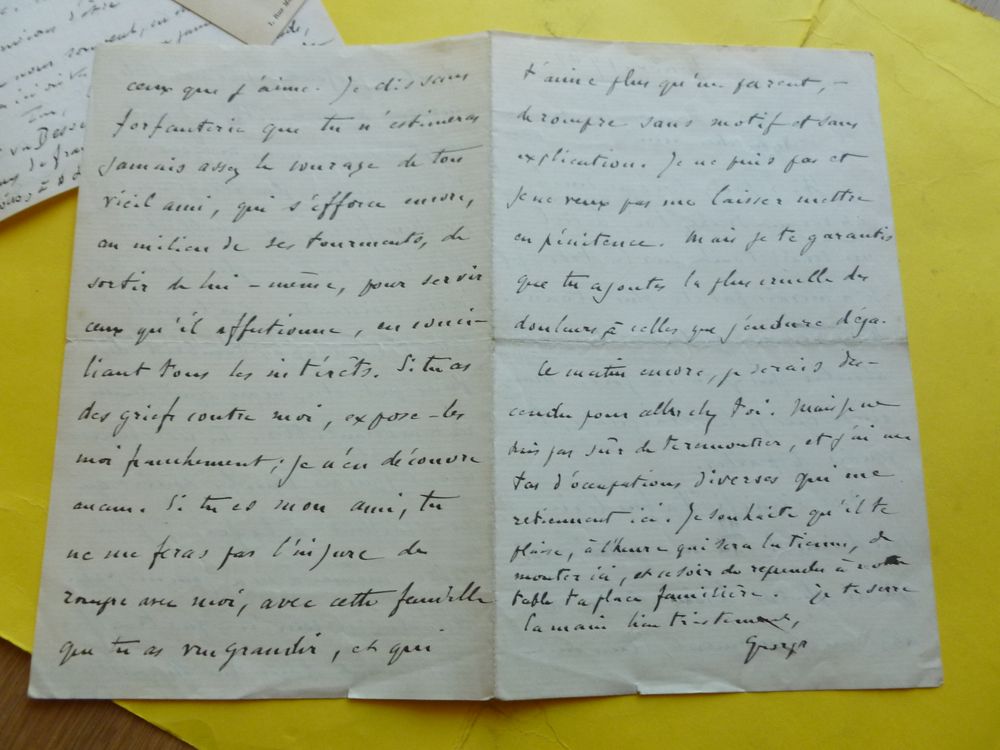 ceux que j'aime. Je dis sans
forfanterie que tu n'estimeras
jamais assez le courage de ton
vieil ami, qui s'efforce encore,
au milieu de ses tourments, de
sortir de lui-même, pour servir
ceux qu'il affectionne, en conci-
liant tous les intérêts. Si tu as
des griefs contre moi, expose-les
moi franchement; je n'en découvre
aucun. Si tu es mon ami, tu
ne me feras pas l'injure de
rompre avec moi, avec cette famille
que tu as vu grandir, et qui
t'aime plus qu'un parent, -
de rompre sans motif et sans
explication. Je ne puis pas et
je ne veux pas me laisser mettre
en pénitence. Mais je te garantis
que tu ajoutes la plus cruelle des
douleurs à celles que j'endure déjà.
Ce matin encore, je serais des-
cendu pour aller chez toi. Mais je ne
suis pas sûr de te rencontrer, et j'ai un
tas d'occupations diverses qui me
retiennent ici. Je souhaite qu'il te
plaise, à l'heure qui sera la tienne, de
monter ici, et ce soir de reprendre à notre
table ta place familière. Je te serre
la main bien tristement,
George